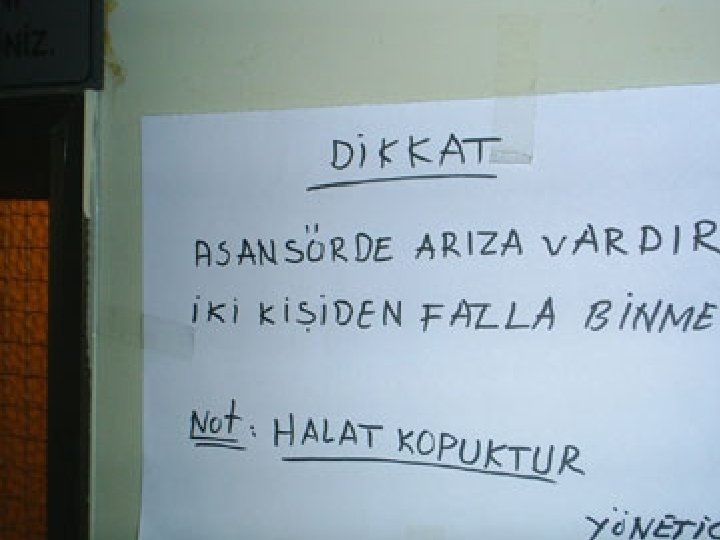 NİZ.
DİKKAT
ASANSÖRDE ARIZA VARDIR
İKİ KİŞİDEN FAZLA BİNME
Not: HALAT KOPUKTUR
YÖNETİC